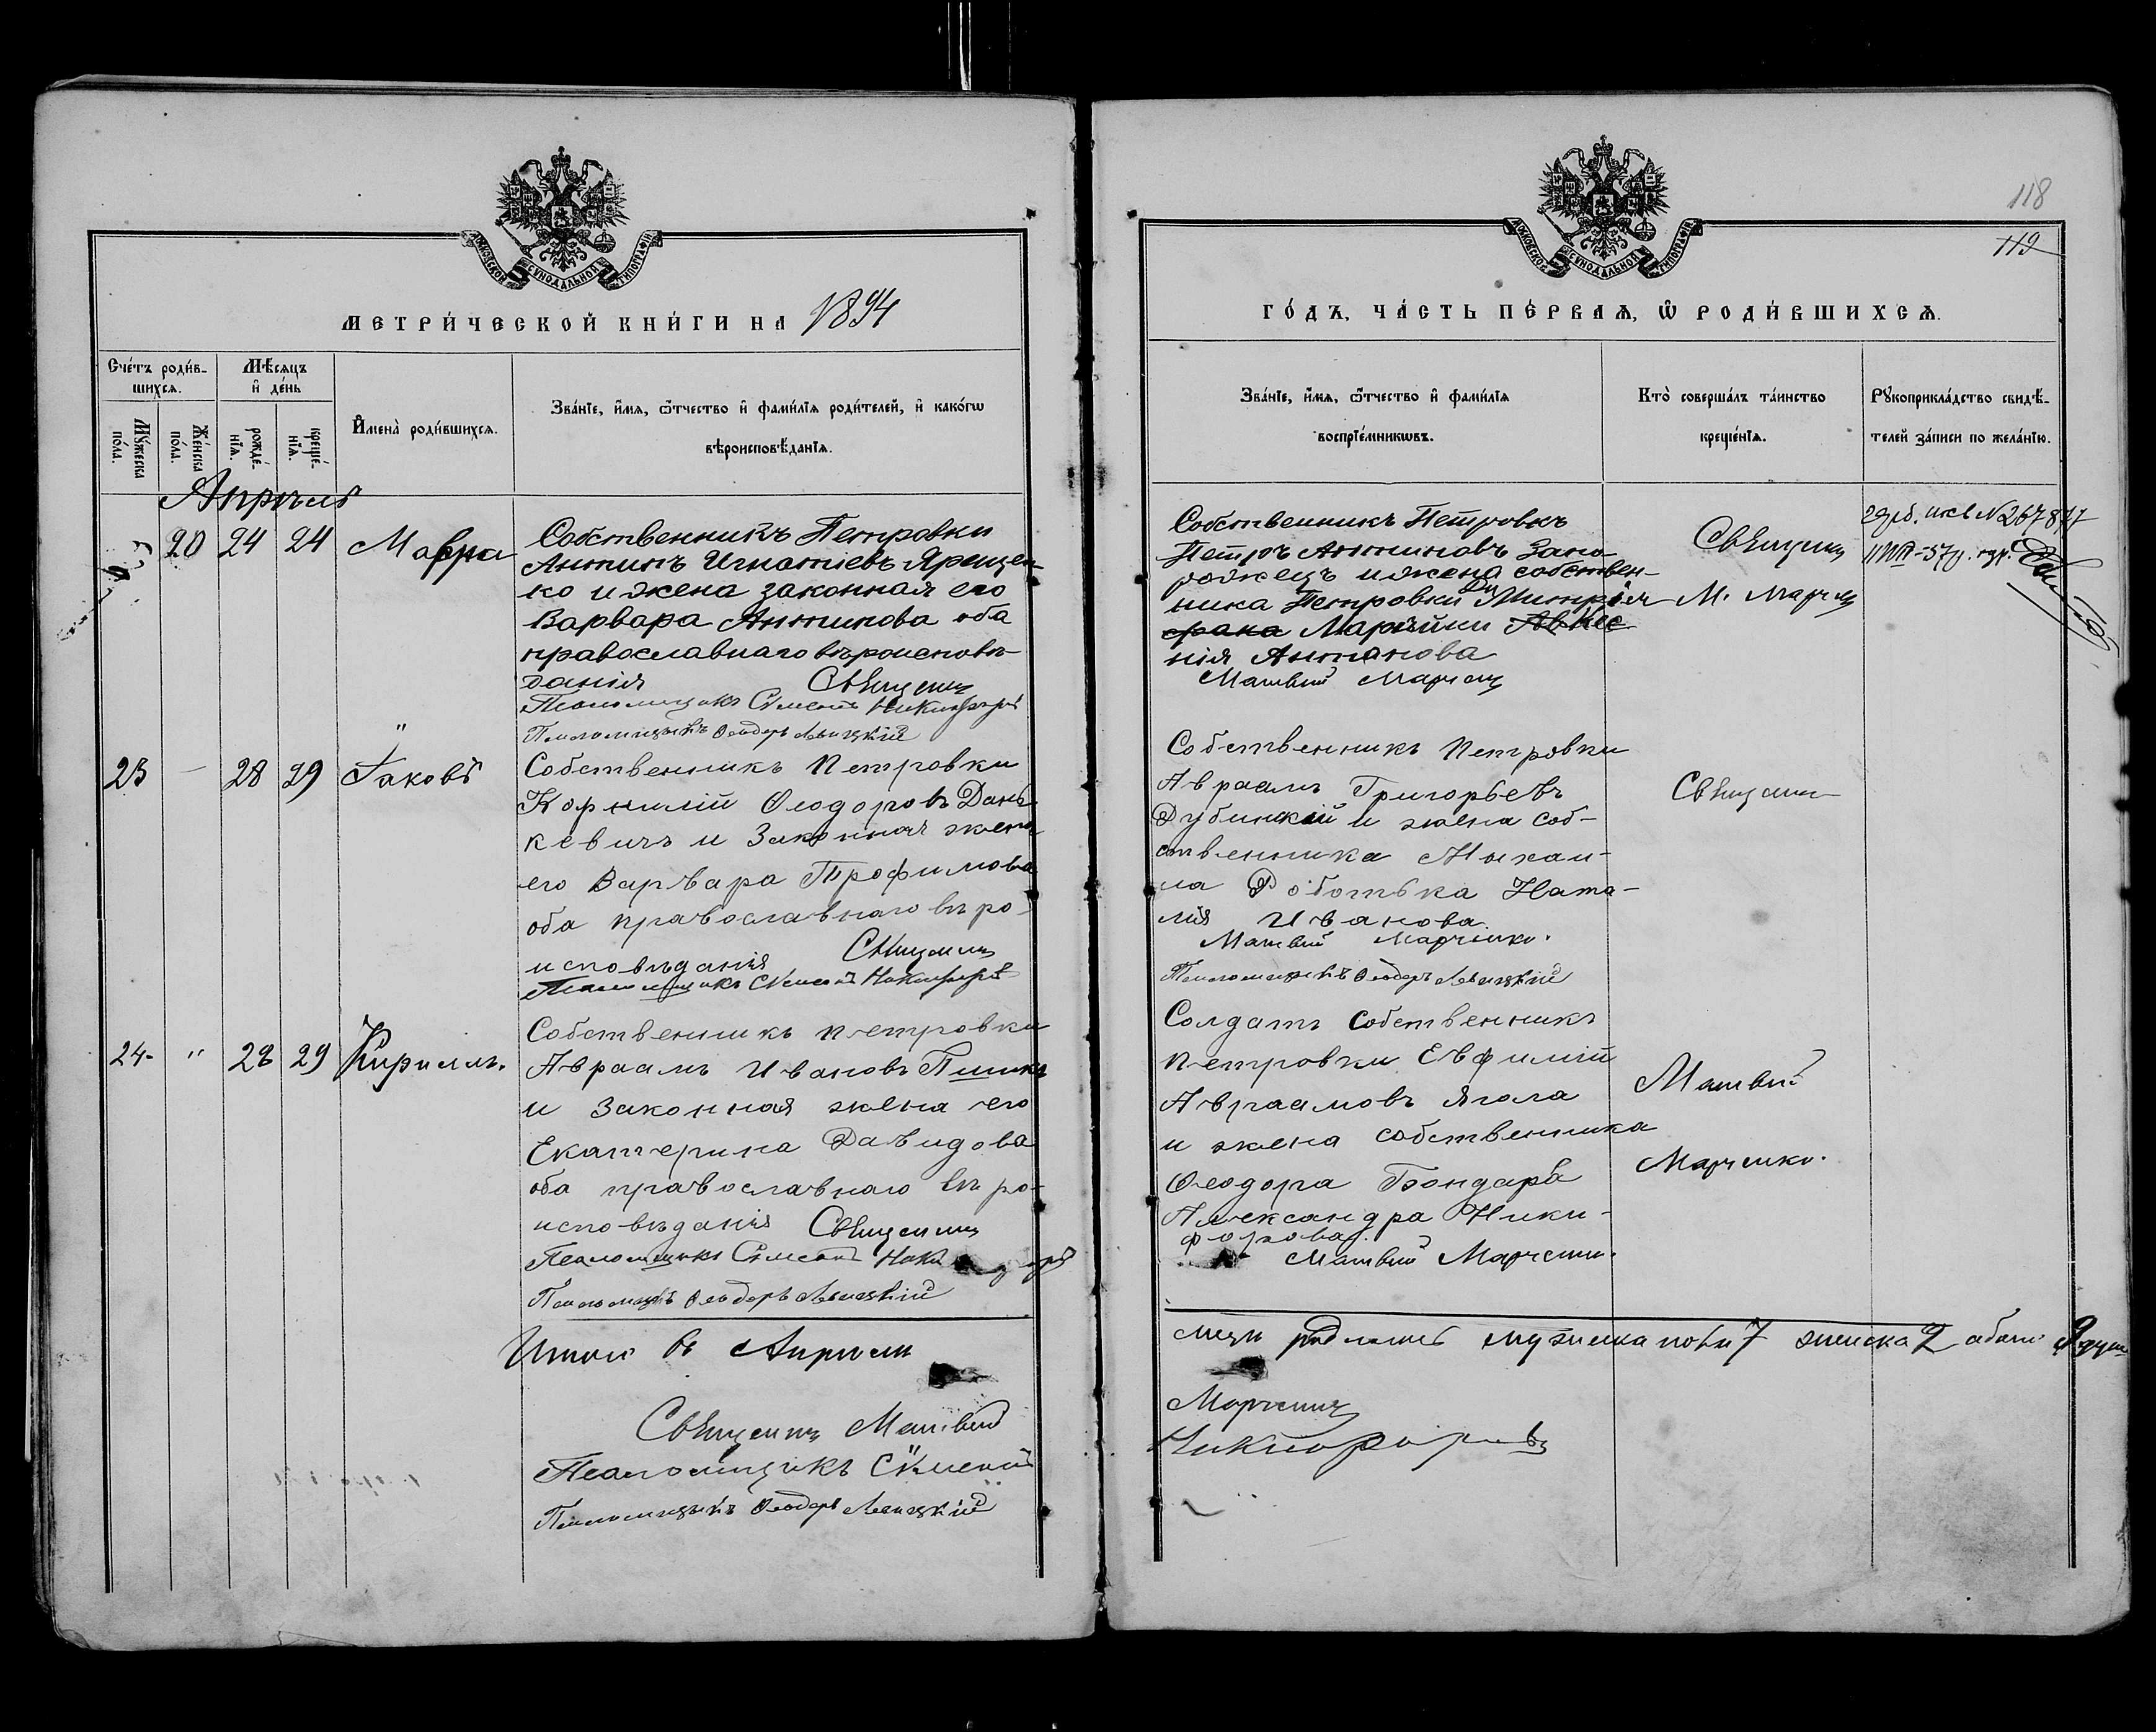 МОСКОВСКОЙ СѴНОДАЛЬНОЙ ТИПОГРАФІИ
МЕТРИ́ЧЕСКОЙ КНИ́ГИ НА 1894
Сче́тъ роди́в-
шихсѧ.
Мѣ́сѧцъ
и҆ де́нь
Мꙋ́жеска
по́ла.
Же́нска
по́ла.
рожде́-
нїѧ.
креще́-
нїѧ.
И҆мена̀ роди́вшихсѧ.
Зва́нїе, и҆́мѧ, ѻ҆́тчество и҆ фами́лїѧ роди́телей, и҆ како́гѡ
вѣроисповѣ́данїѧ.
Апрѣль
20 24 24 Мавра
Собственникъ Петровки
Антипъ Игнатіевъ Ярещен-
ко и жена законная его
Варвара Антипова оба
православнаго вѣроисповѣ-
данія Священ
Псаломщикъ Сѵмеонъ Никифоров
Псаломщикъ Ѳеодоръ Левицкій
23 — 28 29 Іаковъ
Собственникъ Петровки
Корнилій Ѳеодоровъ Дань-
кевичъ и Законная жена
его Варвара Трофимова
оба православнаго вѣро-
исповѣданія Священ
Псаломщикъ Сѵмеонъ Никифоров
24- " 28 29 Кириллъ.
Собственникъ Петровки
Авраамъ Ивановъ
и Законная жена его
Екатерина Давидова
оба православнаго вѣро-
исповѣданія Священ
Псаломщикъ Сѵмеонъ
Псаломщикъ Ѳеодоръ Левицкій
Итого въ Апрѣли
Священ Матвій
Псаломщикъ Сѵмеонъ
Псаломщикъ Ѳеодоръ Левицкій
118
119
МОСКОВСКОЙ СѴНОДАЛЬНОЙ ТИПОГРАФІИ
ГО́ДЪ, ЧА́СТЬ ПЕ́РВАѦ, Ѡ҆ РОДИ́ВШИХСѦ.
Зва́нїе, и҆́мѧ, ѻ҆́тчество и҆ фами́лїѧ
воспрїе́мникѡвъ.
Кто̀ соверша́лъ та́инство
креще́нїѧ.
Рꙋкоприкла́дство свидѣ́-
телей за́писи по жела́нїю.
Собственникъ Петровки
Петръ Антиповъ Запо-
рожецъ и жена собствен-
ника Петровки Димитрія
Марійки Ксе
нія Антонова
Матвій Марчен
Священ
М. Марчен
№ 267877
Собственникъ Петровки
Авраамъ Григорьевъ
Дубинскій и жена соб-
ственника Михаи-
ла Роботька Ната-
лія Иванова.
Матвій Марченко.
Псаломщикъ Ѳеодоръ Левицкій
Священ
Солдатъ Собственникъ
Петровки Евфимій
Авраамовъ Ягола
и жена собственника
Ѳеодора Бондаря
Александра Ники-
форова.
Матвій Марченко.
Матвій
Марченко.
родилось мужеска пола 7 женска 2 обоего 9 душ
Марченко
Никифоровъ